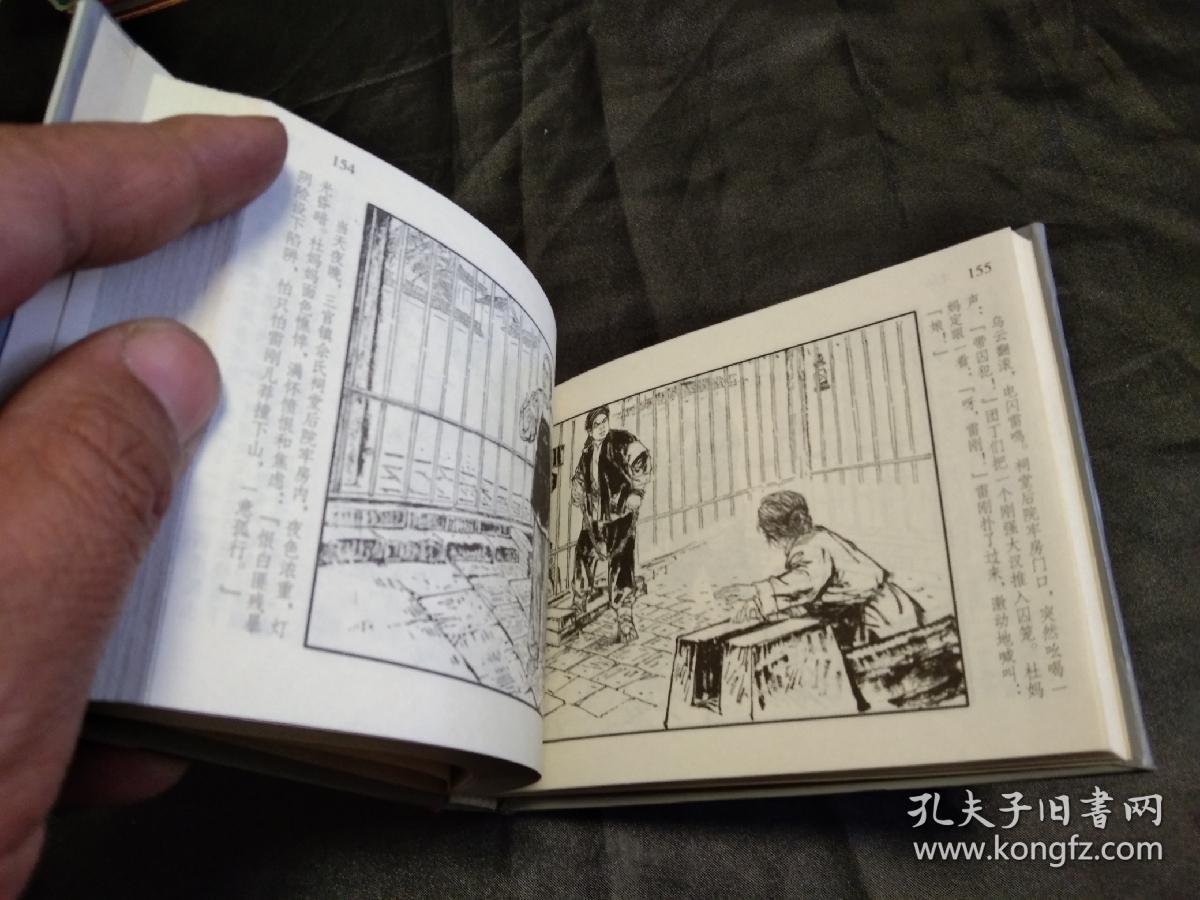 154
当天夜晚，三官镇余氏祠堂后院牢房内，夜色浓重，灯
光昏暗。杜妈妈面色憔悴，满怀愤恨和焦虑：“恨白匪残暴
阴险设下陷阱，怕只怕雷刚儿莽撞下山，一意孤行。”
155
乌云翻滚，电闪雷鸣。祠堂后院牢房门口，突然吆喝一
声：“带囚犯！”团丁们把一个刚强大汉推入囚笼。杜妈
妈定眼一看：“呀，雷刚！”雷刚扑了过来，激动地喊叫：
“娘！”
孔夫子旧书网
www.kongfz.com